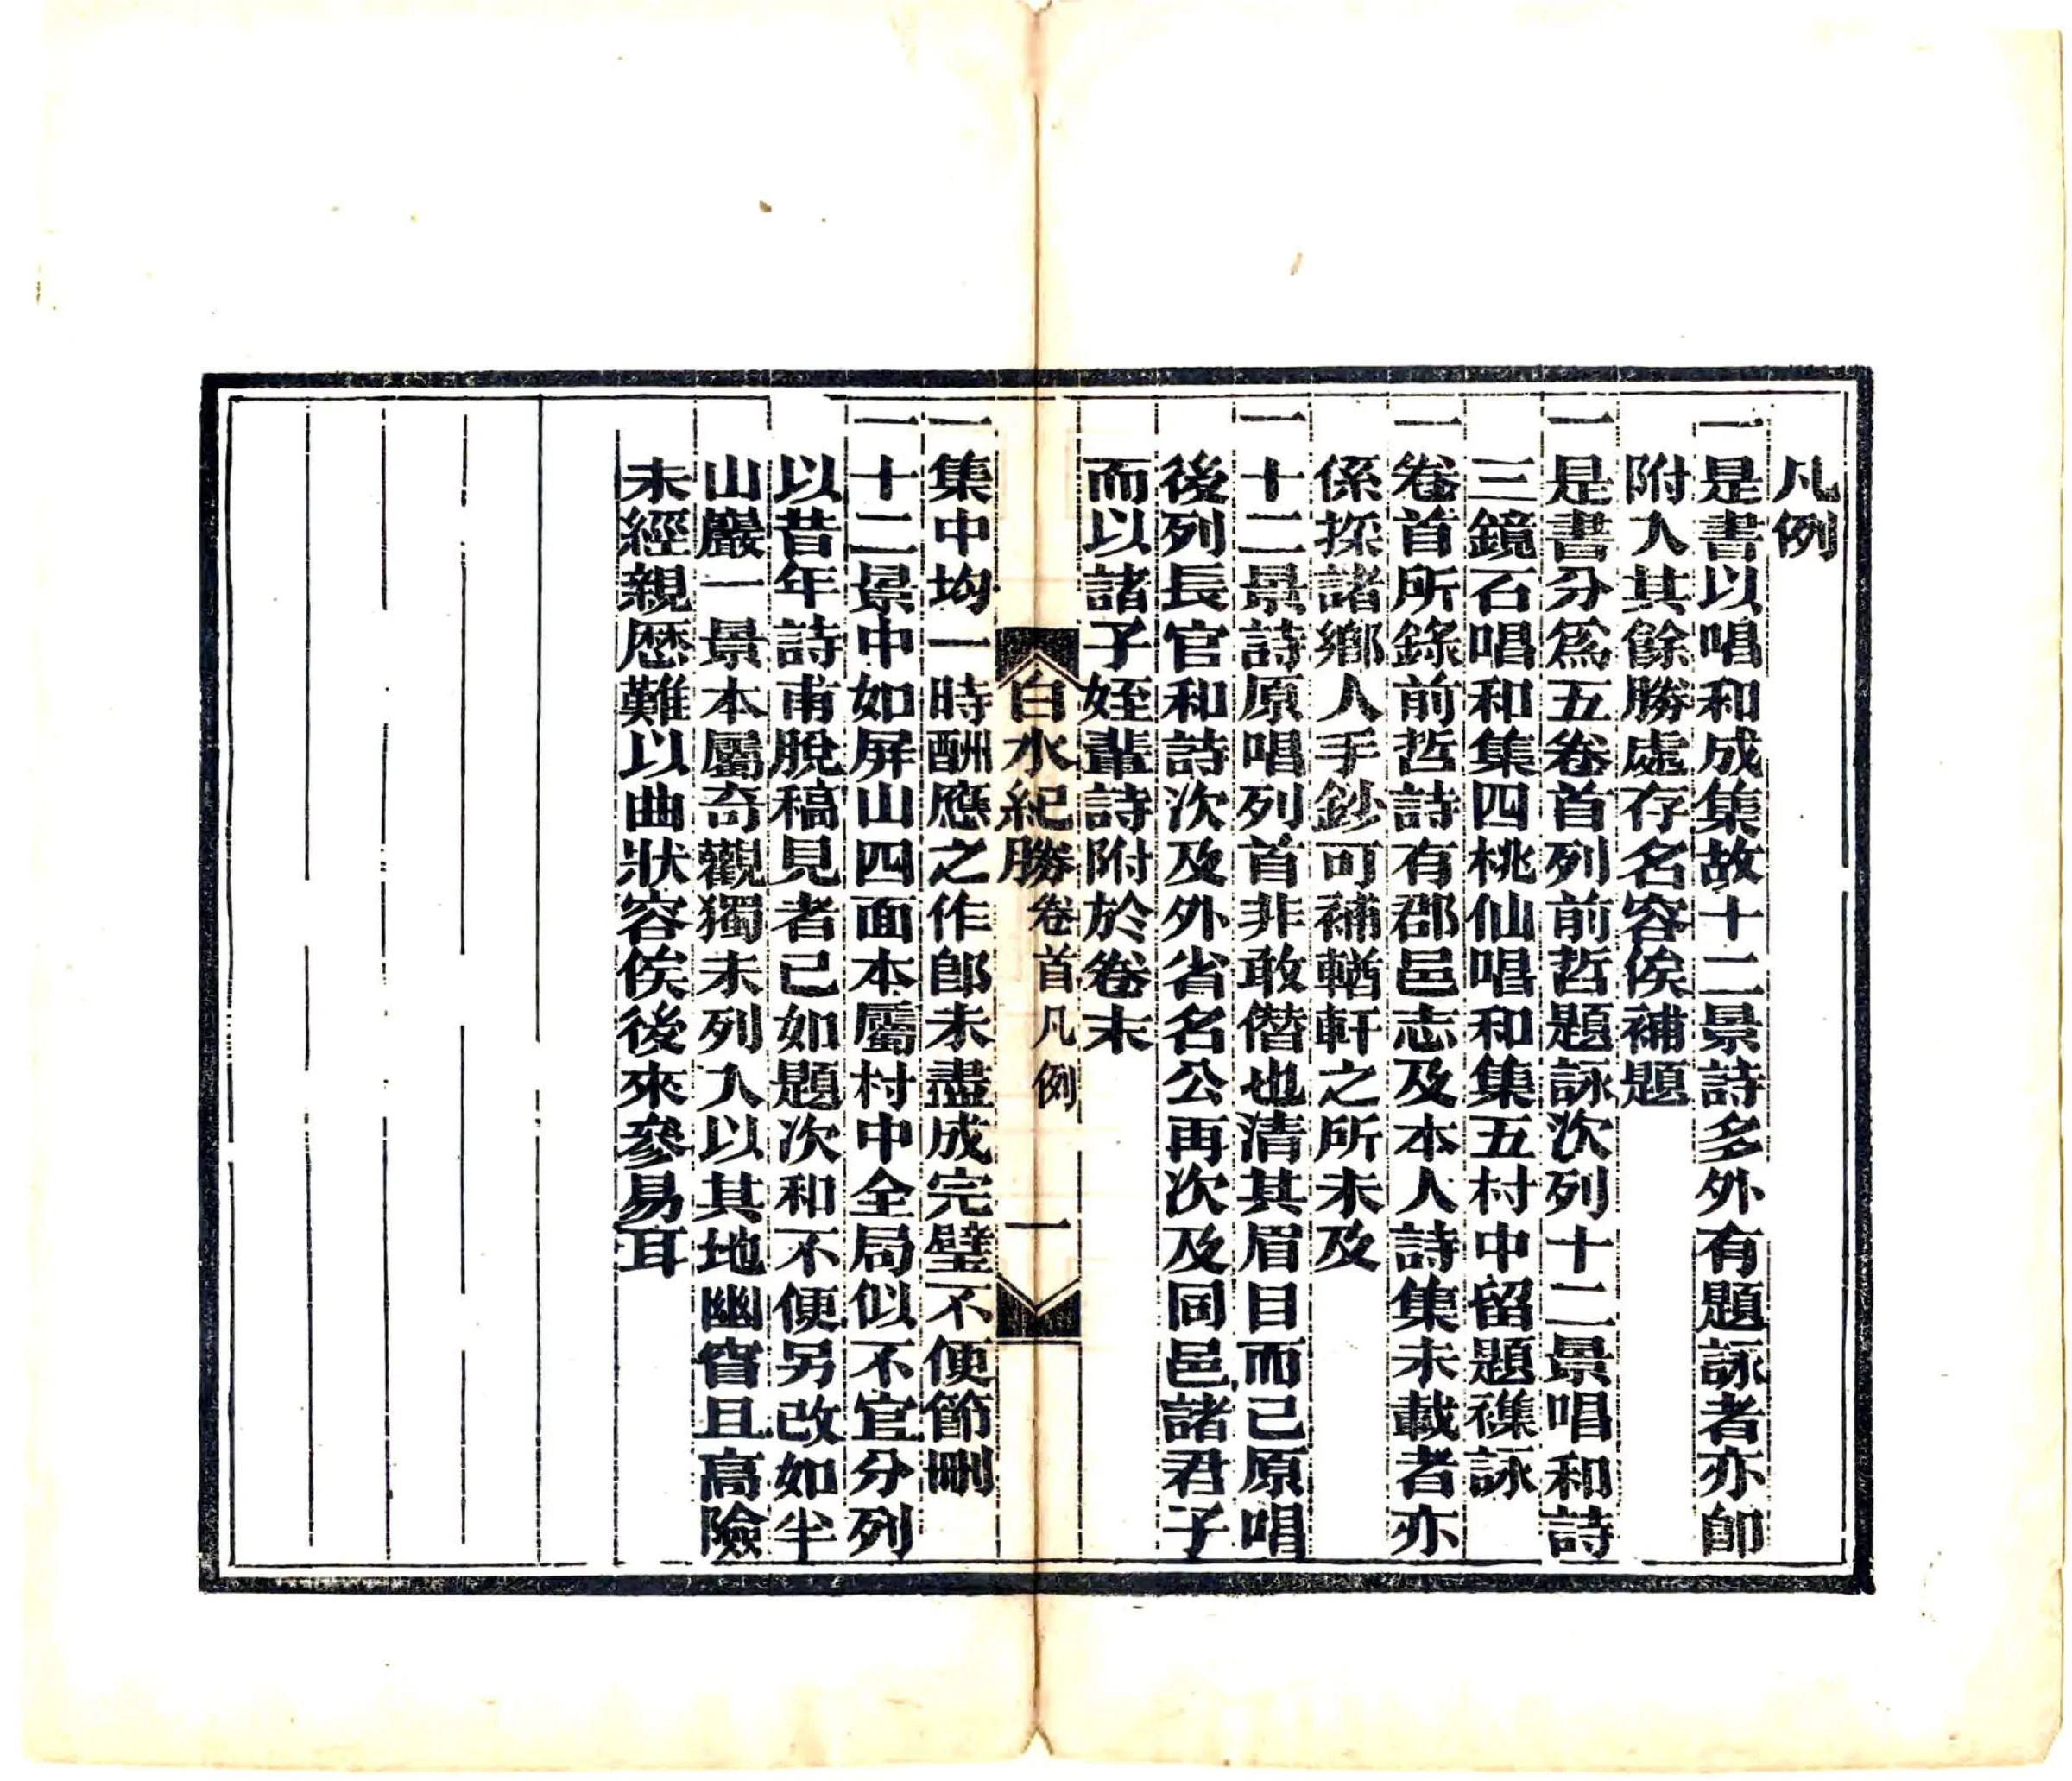 凡例
一是書以唱和成集故十二景詩多外有題詠者亦卽
附入其餘勝處存名容俟補題
一是書分爲五卷首列前哲題詠次列十二景唱和詩
三鏡石唱和集四桃仙唱和集五村中留題襍詠
一卷首所錄前哲詩有郡邑志及本人詩集未載者亦
係採諸鄉人手鈔可補輶軒之所未及
一十二景詩原唱列首非敢僭也清其眉目而已原唱
後列長官和詩次及外省名公再次及同邑諸君子
而以諸子姪輩詩附於卷末
白水紀勝卷首凡例 一
一集中均一時酬應之作卽未盡成完璧不便節刪
一十二景中如屏山四面本屬村中全局似不宜分列
以昔年詩甫脫稿見者已如題次和不便另改如半
山巖一景本屬奇觀獨未列入以其地幽窅且高險
未經親歷難以曲狀容俟後來參易耳